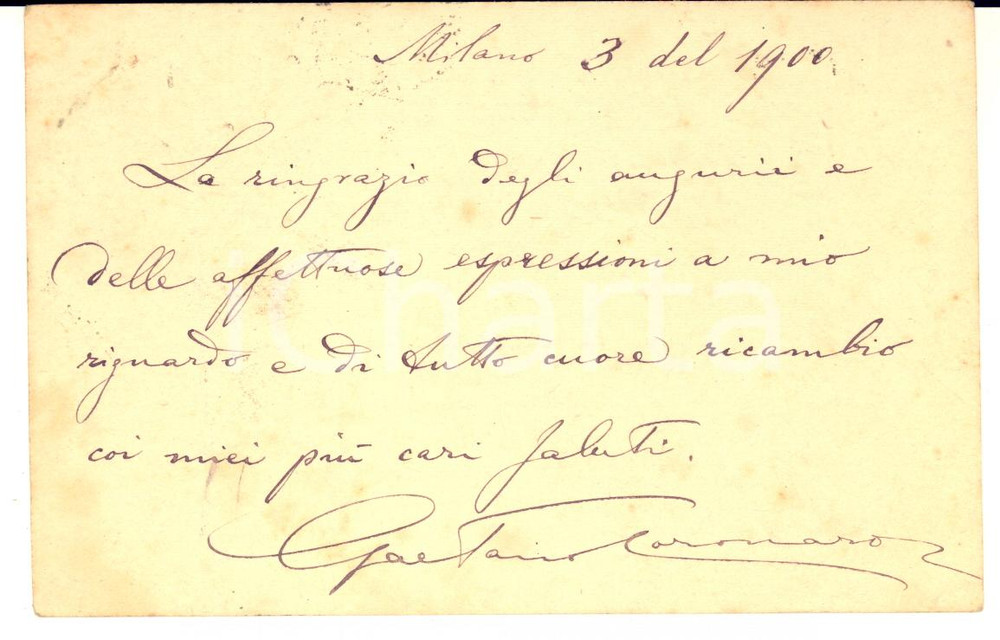 Milano 3 del 1900
La ringrazio degli augurii e
delle affettuose espressioni a mio
riguardo e di tutto cuore ricambio
coi miei più cari saluti.
Gaetano Coronaro